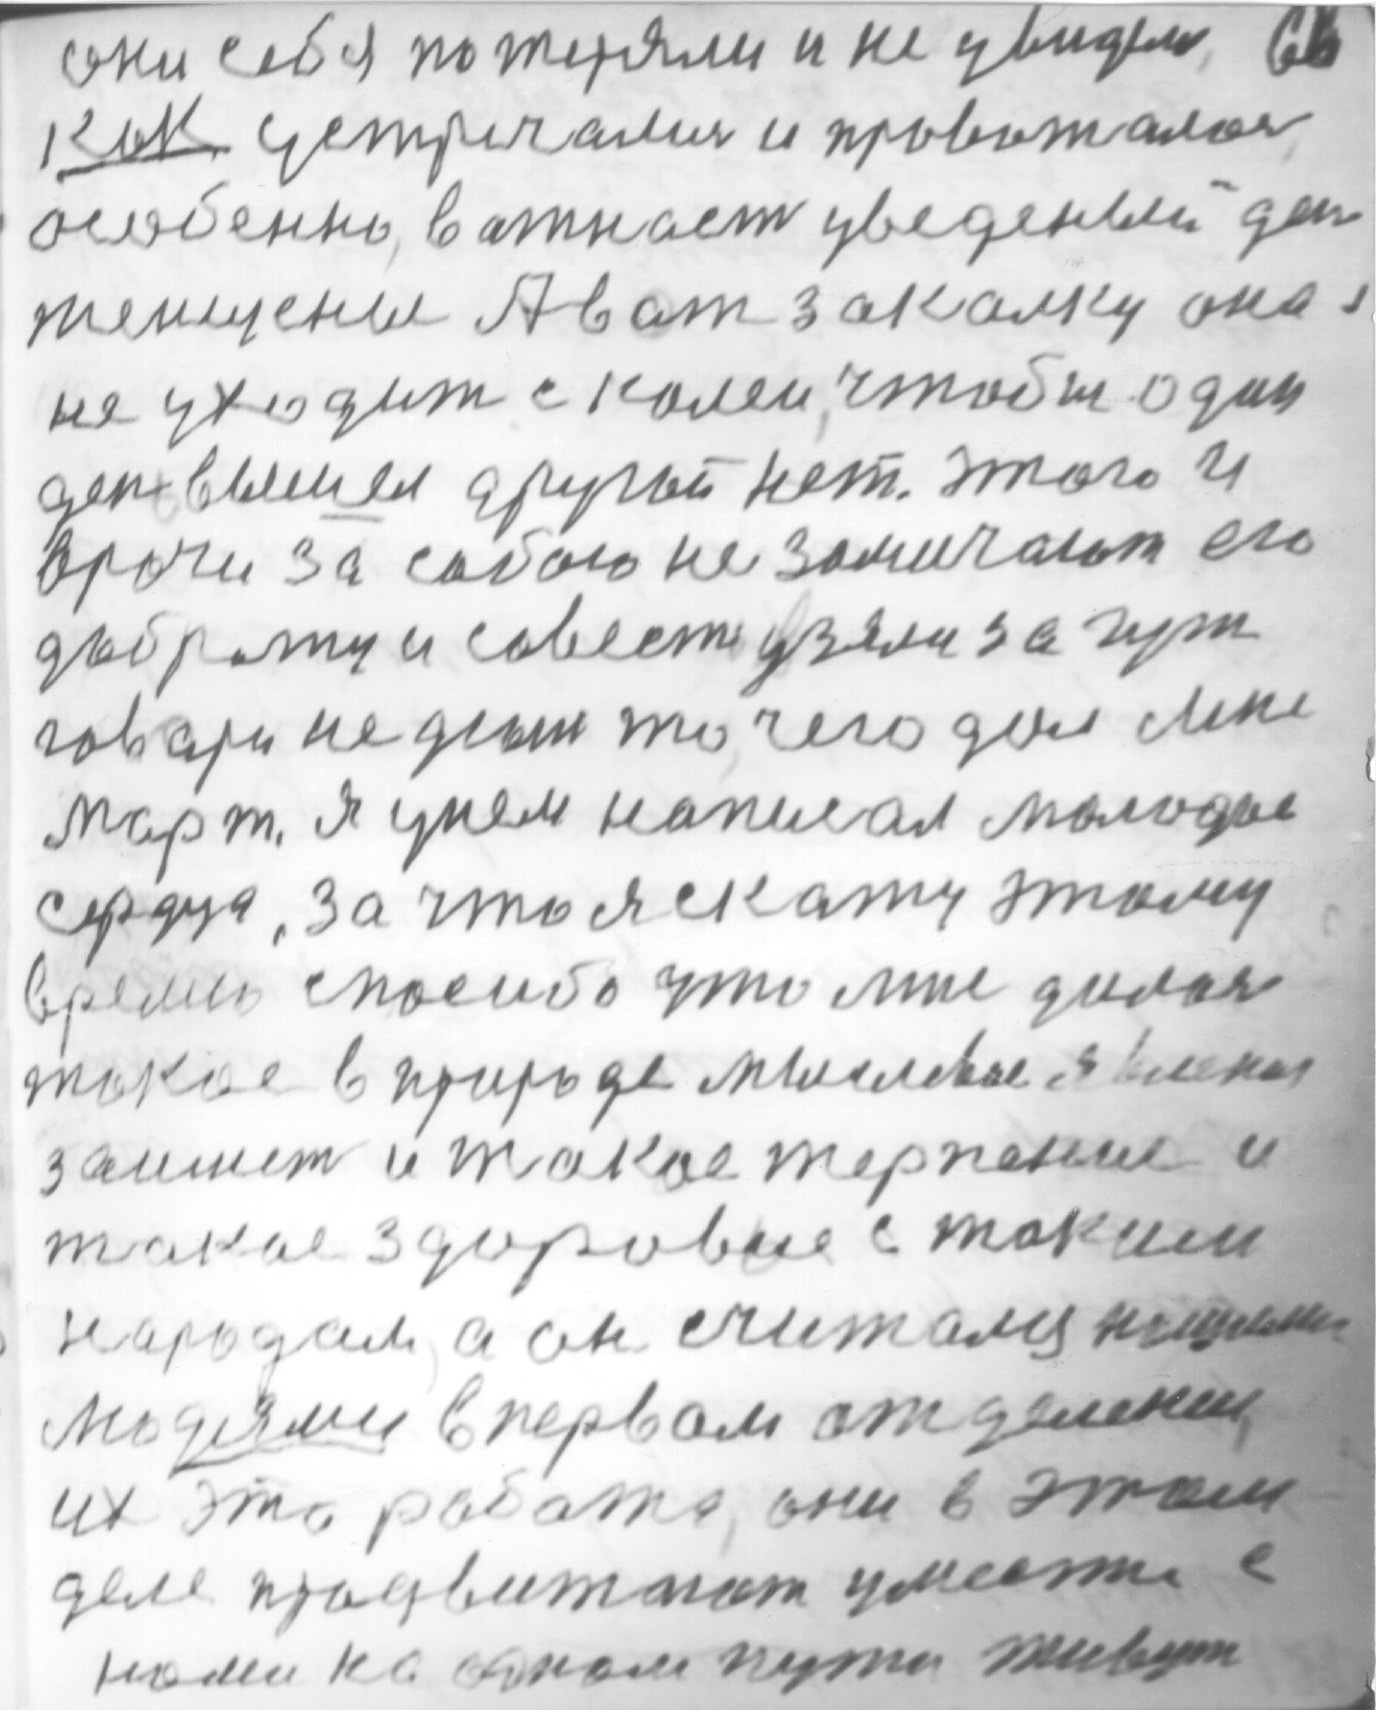 они себя потеряли и не увидели, 66
как устричался и проважался,
особенно, важнаст уведеный ден
тенщуеные А вот закалку она
не уходит с колеи, чтобы один
ден вышел другой нет. Этого и
врачи за собою не замичают его
доброту и совест узяли за гурт
говаря не дают то, чего дал мне
март. Я унем написал молодые
сердца, за что я скажу этому
время спосибо что мне дилая
такое в природе мыслевое явленья
заимет и такое терпение и
такое здоровие с таким
народам, а он считалц нищими
людями в первом отделении,
их это работа, они в этом
деле продвигают умести с
нами на одном пути живут